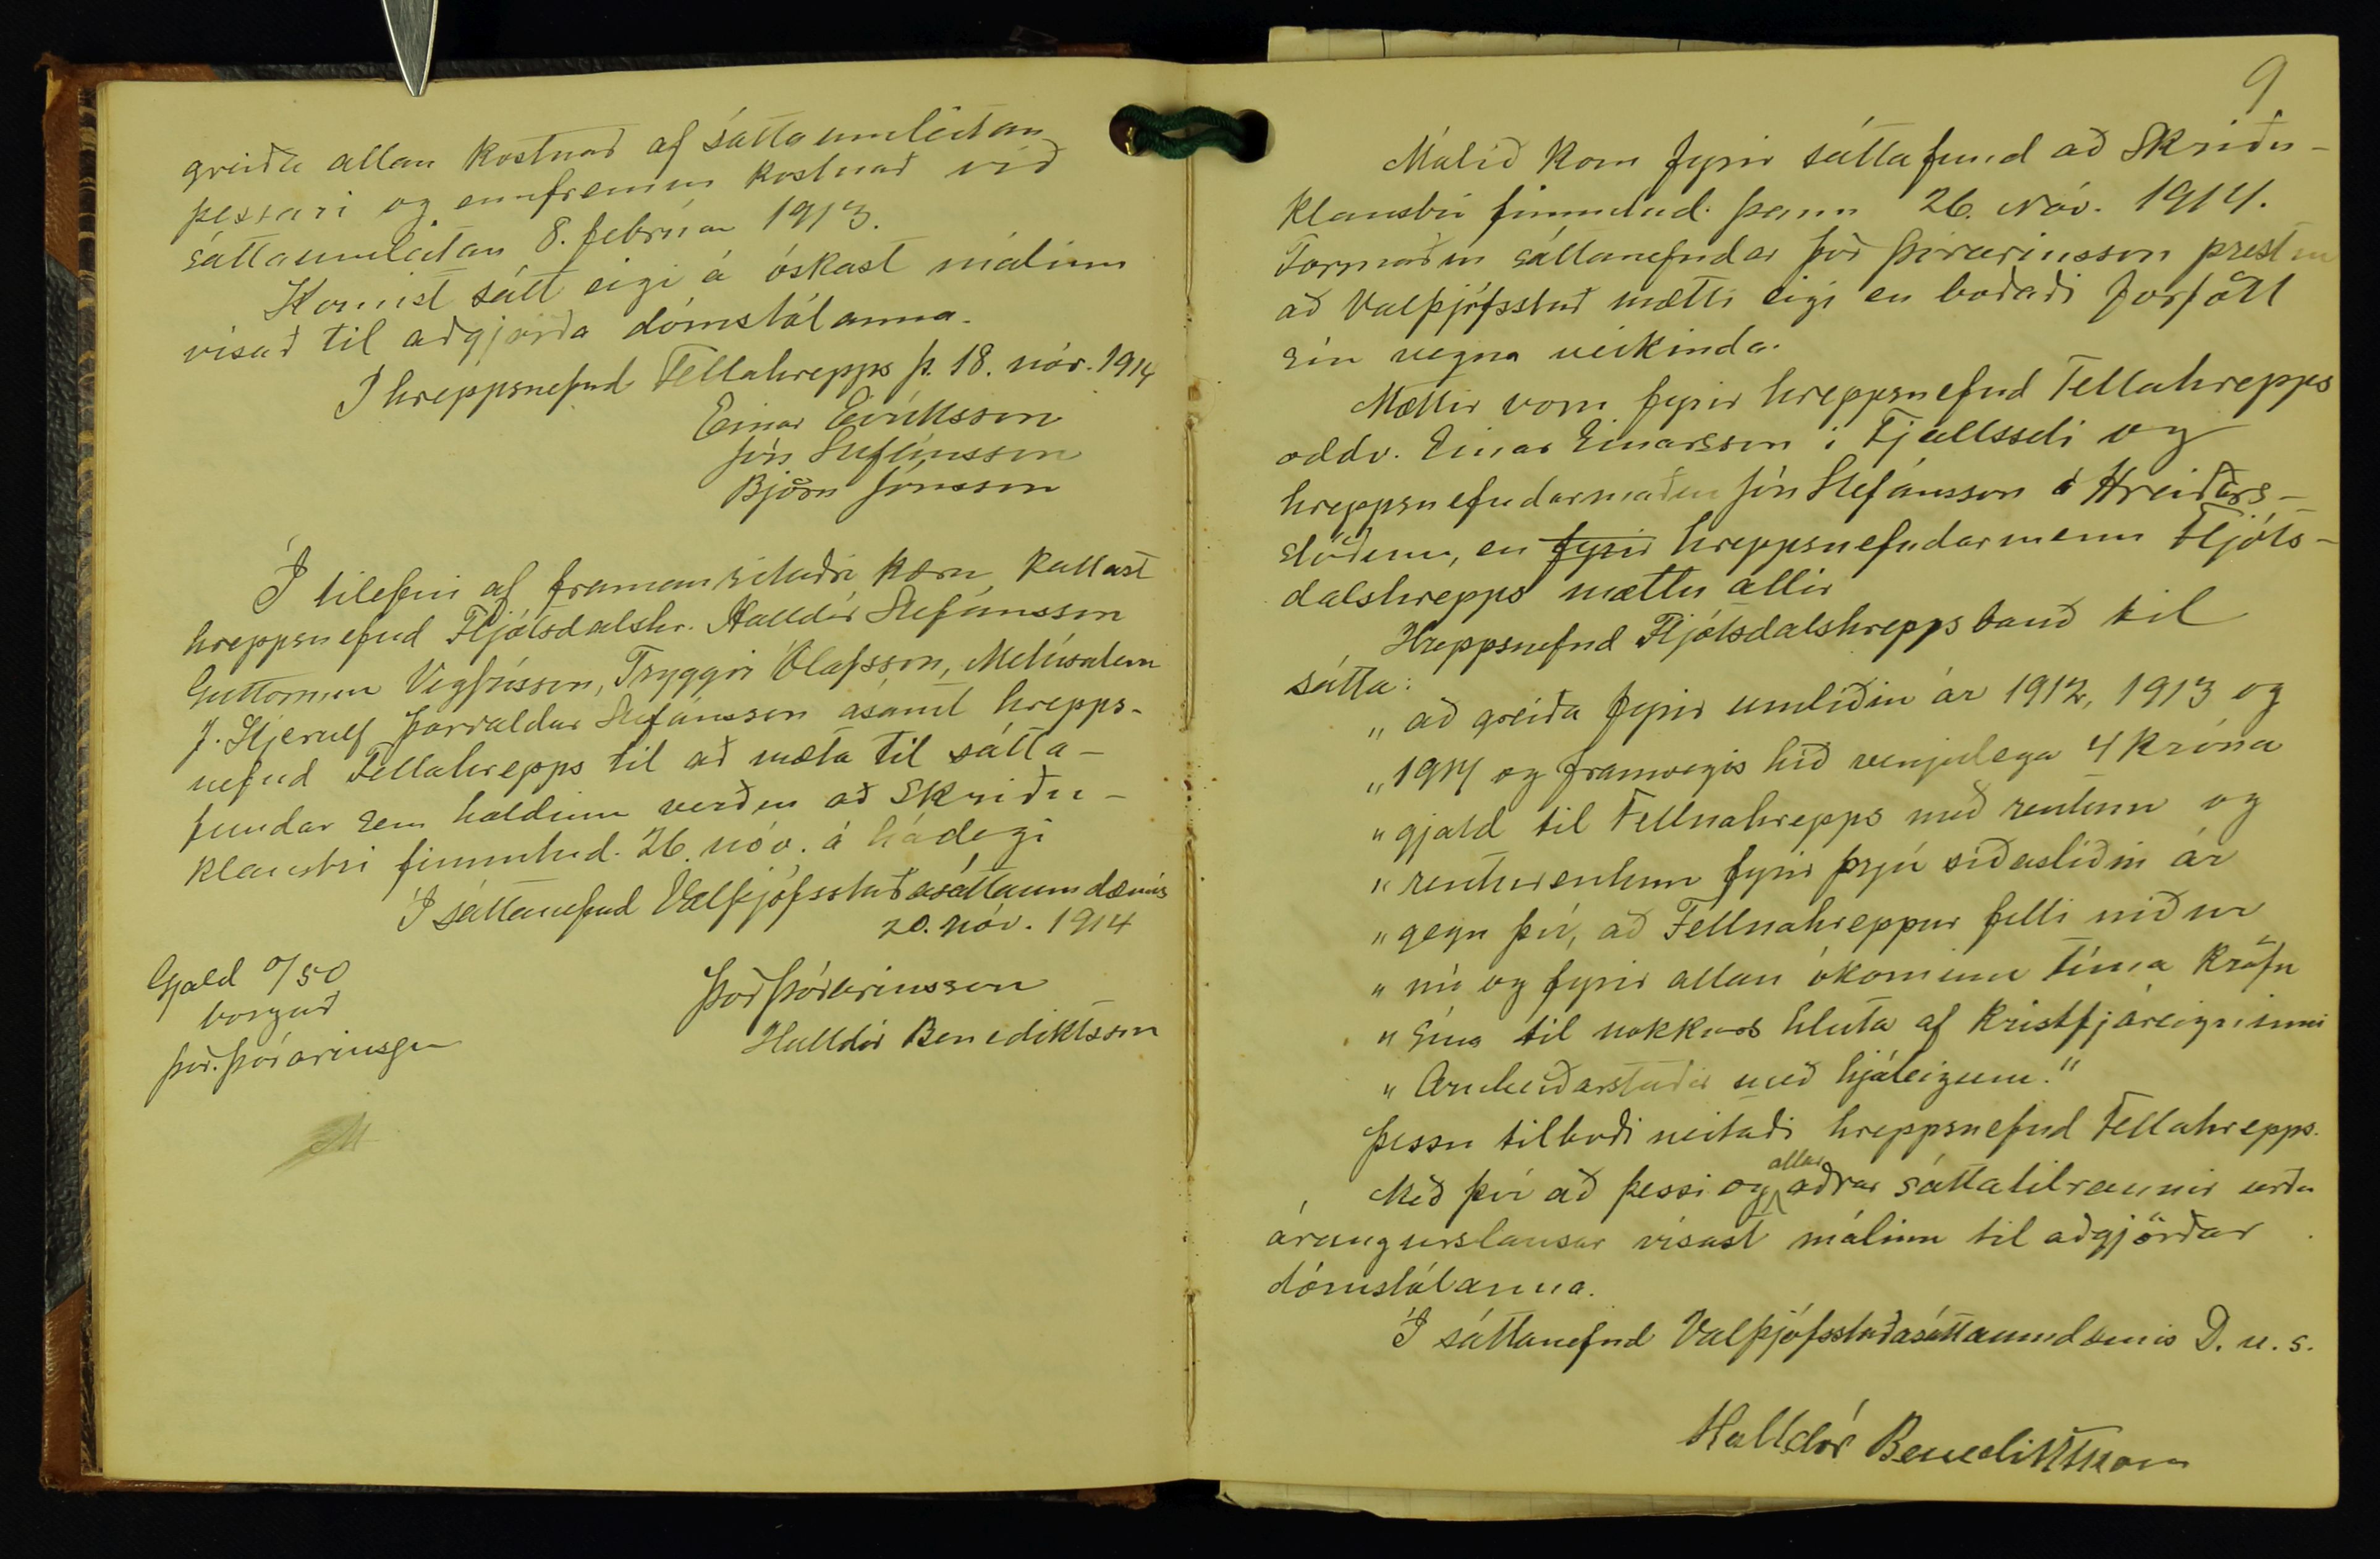 greiða allan kostnað af sáttaumleitan
þessari og ennfremur kostnað við
sáttaumleitan 8. febrúar 1913.
Komist sátt eigi á óskast málinu
vísað til aðgjörða dómstólanna.
Í hreppsnefnd Fellahrepps þ. 18. nóv. 1914
Einar Eiríksson
Jón Stefánsson
Björn Jónsson
Í tilefni af framanritaðri kæru kallast
hreppsnefnd Fljótsdalshr. Halldór Stefánsson
Guttormur Vigfússon, Tryggvi Ólafsson, Metúsalem
J. Kjerulf Þorvaldur Stefánsson ásamt hrepps-
nefnd Fellahrepps til að mæta til sátta-
fundar sem haldinn verður að Skriðu-
klaustri fimmtud. 26. nóv. á hádegi
Í sáttanefnd Valþjófsstaðasáttaumdæmis
20. nóv. 1914
Þór. Þórarinsson
Halldór Benediktsson
Gjald 0/50
borgað
Þór. Þórarinsson
9.
Málið kom fyrir sáttafund að Skriðu-
klaustri fimmtud. þann 26. nóv. 1914.
Formaður sáttanefndar Þór Þórarinsson prestur
að Valþjófsstað mætti eigi en boðaði forföll
sín vegna veikinda.
Mættir voru fyrir hreppsnefnd Fellahrepps
oddv. Einar Einarsson í Fjallsseli og
hreppsnefndarmaður Jón Stefánsson á Hreiðars-
stöðum, en fyrir hreppsnefndarmenn Fljóts-
dalshrepps mættu allir
Hreppsnefnd Fljótsdalshrepps bauð til
sátta:
„að greiða fyrir umliðin ár 1912, 1913 og
„1914 og framvegis hið venjulega 4 króna
„gjald til Fellnahrepps með rentum og
„renturentum fyrir þrjú síðastliðin ár
„gegn því, að Fellnahreppur felli niður
„nú og fyrir allan ókominn tíma kröfu
„sína til nokkurs hluta af Kristfjáreigninni
„Arnheiðarstaðir með hjáleigum."
Þessu tilboði neitaði hreppsnefnd Fellahrepps.
Með því að þessi og allar aðrar sáttatilraunir urðu
árangurslausar vísast málinu til aðgjörðar
dómstólanna.
Í sáttanefnd Valþjófsstaðasáttaumdæmis D. u. s.
Halldór Benediktsson